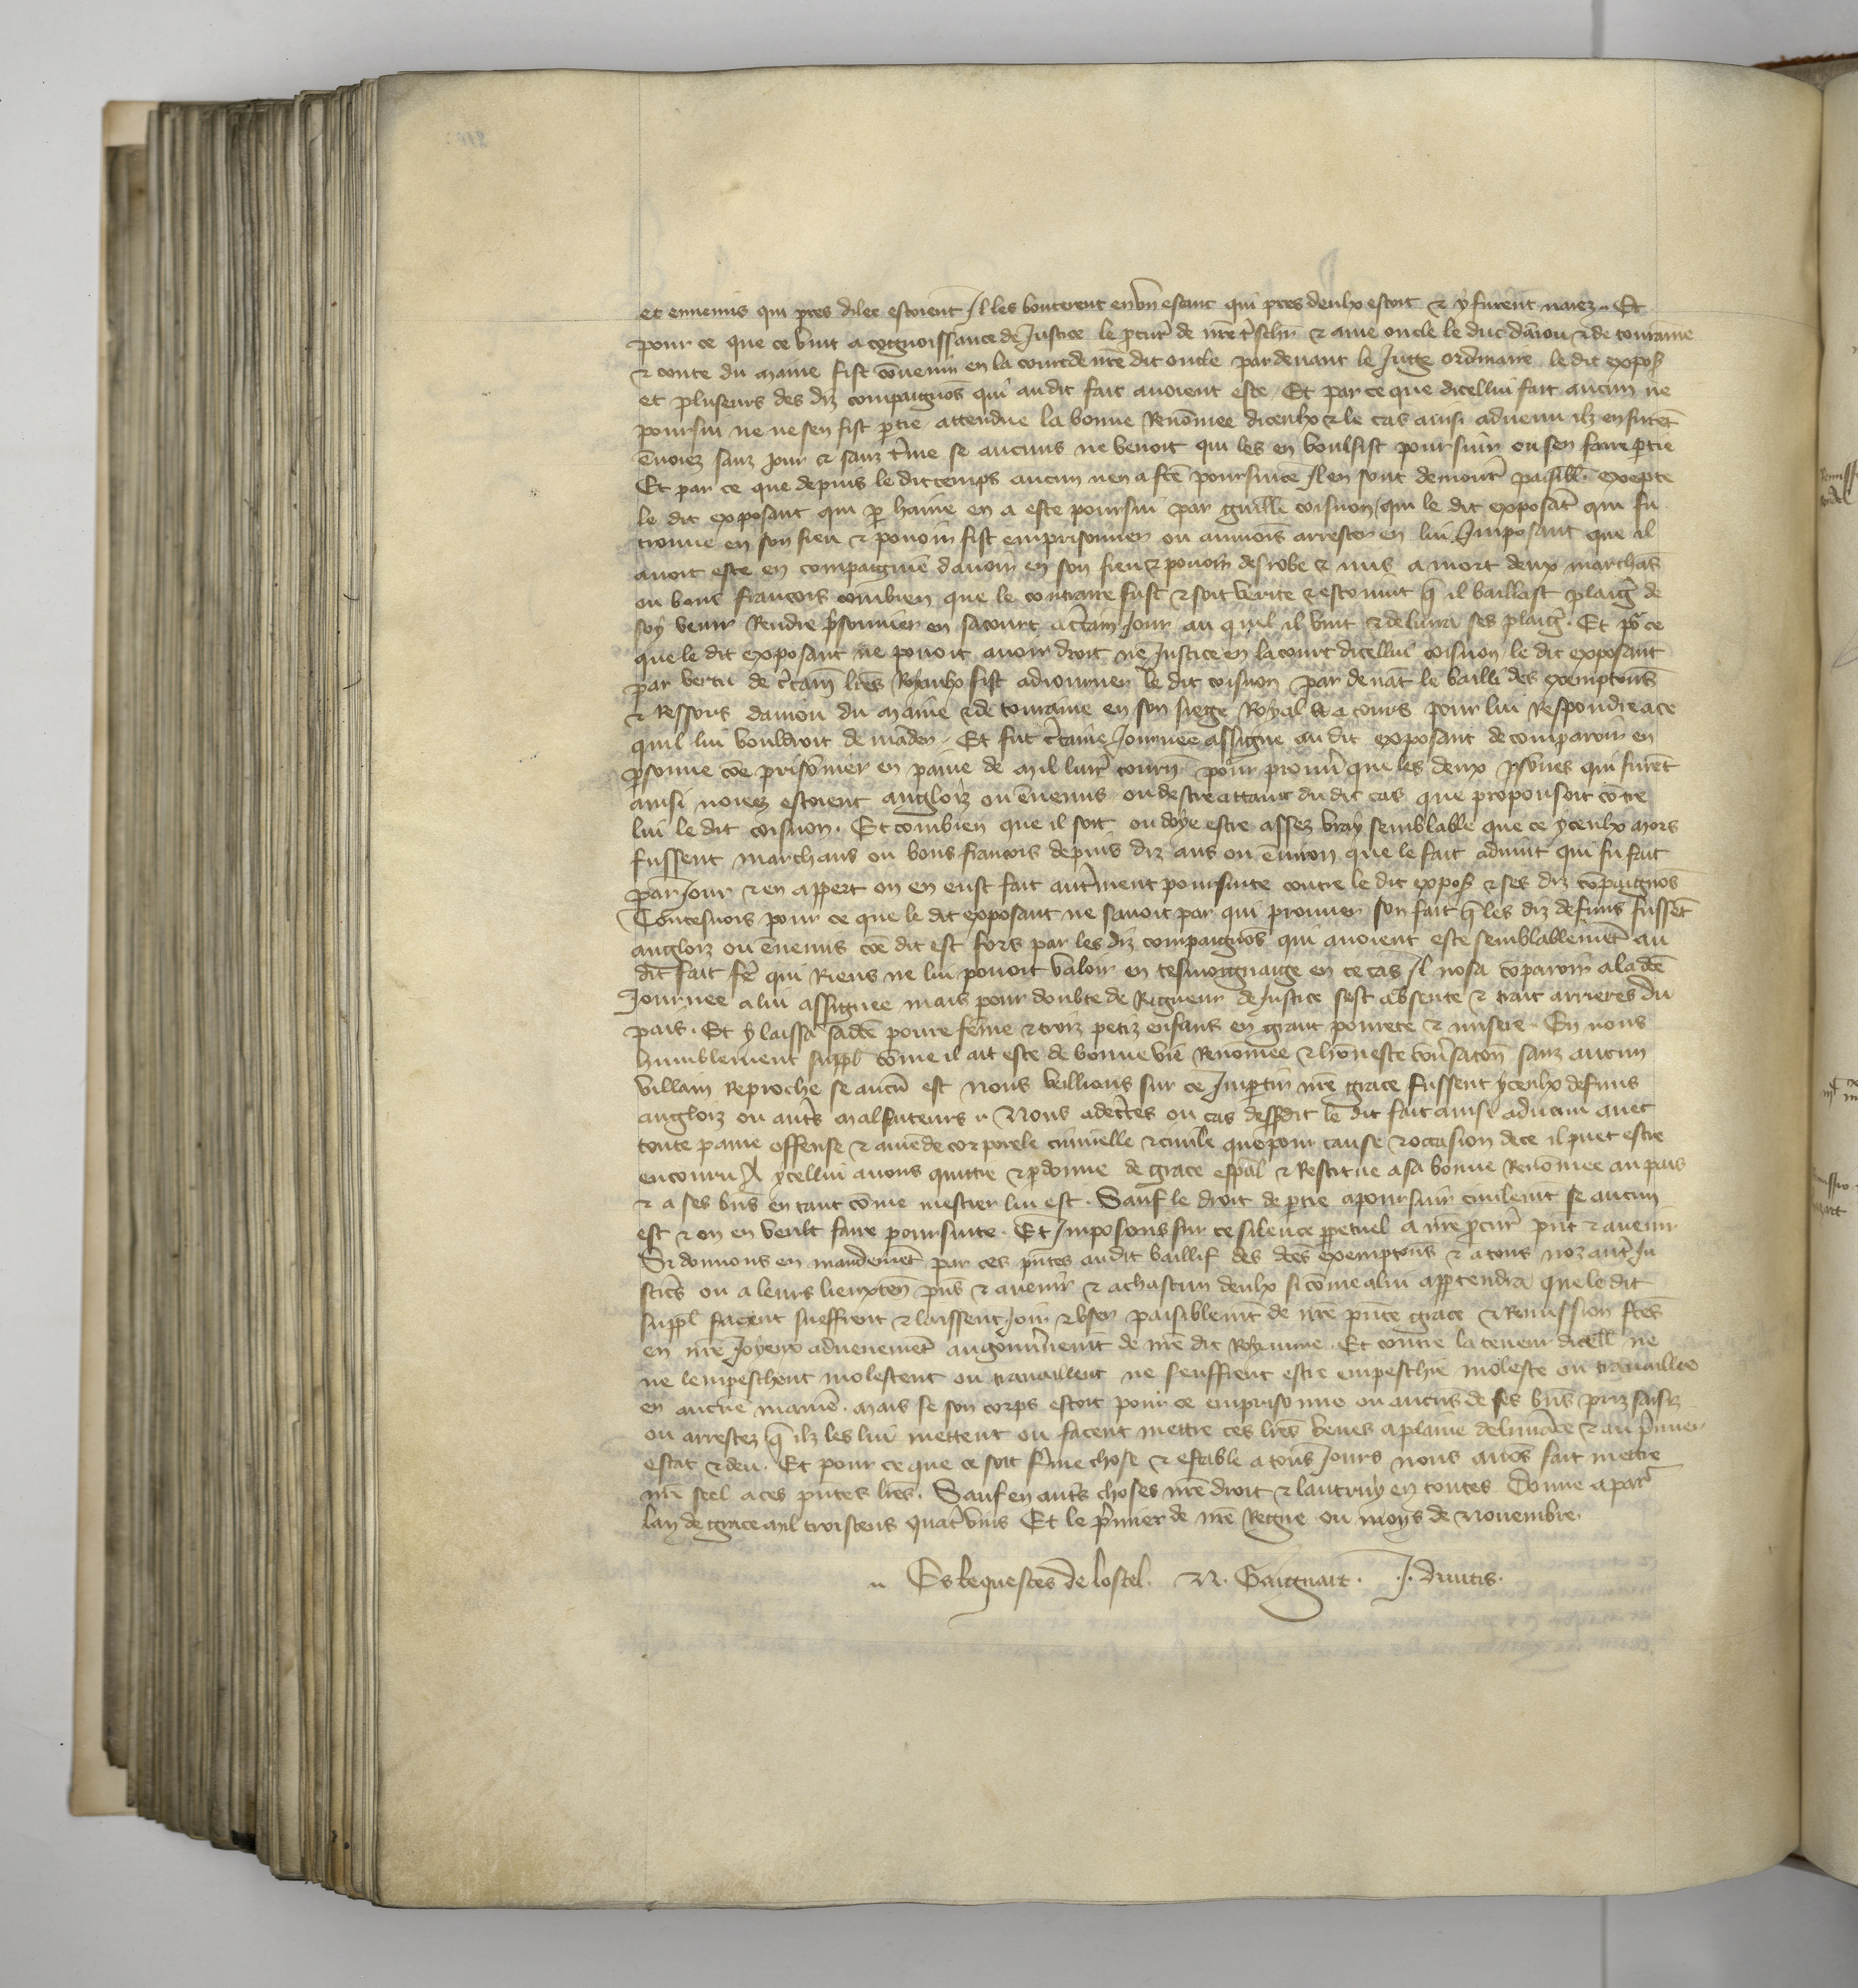 et ennemis qui pres dilec estoient Il les bouterent en un estanc qui pres deulx estoit & y furent naiez. Et
pour ce que ce vint a cognoissance de Justice le pcur de nre tschier & ame oncle le duc daniou & de touraine
& conte du maine fist convenir en la court de nre dit oncle par devant le Juge ordinaire le dit expos
et pluseurs des diz compaignons qui audit fait avoient este Et par ce que dicellui fait aucun ne
poursui ne ne sen fist ptie attendue la bonne Renommee diceulx & le cas ainsi advenu ilz en furent
envoiez sanz jour & sanz tme se aucuns ne venoit qui les en voulsist poursuir ou sen faire ptie
Et par ce que depuis le dit temps aucun nen a fte poursuite Il en sont demour paisibl excepte
le dit exposant qui p haine en a este poursui par guille coisnon qui le dit exposant qui fu
trouve en son fieu & povoir fist emprisonner ou aumois arrester en lui Imposant que il
avoit este en compaignie davoir en son fieu & povoir desrobe & mis a mort deux marchas
ou bons francois combien que le contraire fust & soit verite & escouint q il baillast plaig de
soy venir Rendre psonnier en sa court a ctain Jour au quel il vint & delivra ses plaig. Et po ce
que le dit exposant ne povoit avoir droit ne Justice en la court dicellui coisnon le dit exposant
par vertu de ctain lres Royaulx fist adiourner le dit coisnon par devat le bailli des exemptons
& Ressors daniou du maine & de touraine en son siege Royal a tours pour lui Respondre a ce
quil lui vouldroit demader. Et fut ctaine Journee assigne au dit exposant de comparoir en
psonne coe prisonnier en paine de mil livr tourn pour prouv que les deux psones qui furet
ainsi noiez estoient anglois ou ennemis ou destre attaint du dit cas que proposoit contre
lui le dit coisnon. Et combien que il soit ou doye estre assez vray semblable que ce yceulx mors
fussent marchans ou bons francois depuis diz ans ou environ que le fait advint qui fu fait
par Jour & en appert on en eust fait autment poursuite contre le dit expos & ses diz compaignos
Toutesvois pour ce que le dit exposant ne savoit par qui prouver son fait q les diz defuns fussent
anglois ou ennemis coe dit est fors par les diz compaignos qui avoient este semblablement au
dit fait fe qui Riens ne lui povoit valoir en tesmoignaige en ce cas Il nosa coparoir a la de
Journee a lui assignee mais pour doubte de Rigueur de Justice sest absente & trait arrieres du
pais. Et y laissa sade povre feme & troiz petiz enfans en grant povrete & misere. En nous
humblement suppl come il ait este de bonne vie Renommee & honeste convsaton sanz aucun
villain Reproche se aucu est nous veillions sur ce Impartir nre grace fussent yceulx defuns
anglois ou auts malfaiteurs Nous adectes ou cas dessdit le dit fait ainsi advenu avec
toute paine offense & amede corporele criminelle & civile que pour cause & occasion de ce il puet estre
encouru A ycellui avons quittie & pdonne de grace espal & Restitue a sa bonne Renommee au pais
& a ses bns en tant come mestier lui est. Sauf le droit de ptie a poursuir civilemt se aucun
est & on en veult faire poursuite. Et Imposons sur ce silence ppetuel a nre pcur pnt & avenir
Si donnons en mandemet par ces pntes au dit baillif des dces exemptons & a tous noz aut Ju
stics ou a leurs lieuxten pns & avenir & a chascun deulx si come a lui apptendra que le dit
suppl facent sueffrent & laissent Joir & user paisiblemt de nre pnte grace & Remission fces
en nre Joyeux advenement au gouvnemt de nre dit Royaume. Et contre la teneur dicell ne
ne lempeschent molestent ou travaillent ne seuffrent estre empeschie moleste ou travaillie
en aucune maniere. mais se son corps estoit pour ce emprisonne ou aucuns de ses bns priz saisiz
ou arrestez q ilz les lui mettent ou facent mettre ces lres veues a plaine delivrace & au pmier
estat & deu. Et pour ce que ce soit ferme chose & estable a tous Jours nous avos fait mettre
nre seel a ces pntes lres. Sauf en auts choses nre droit & lautruy en toutes Donne a par
lan de grace mil troiscens quat vins Et le pmier de nre Regne ou moys de Novembre.
Es Requestes de lostel. N. Gaignart. J. divitis.